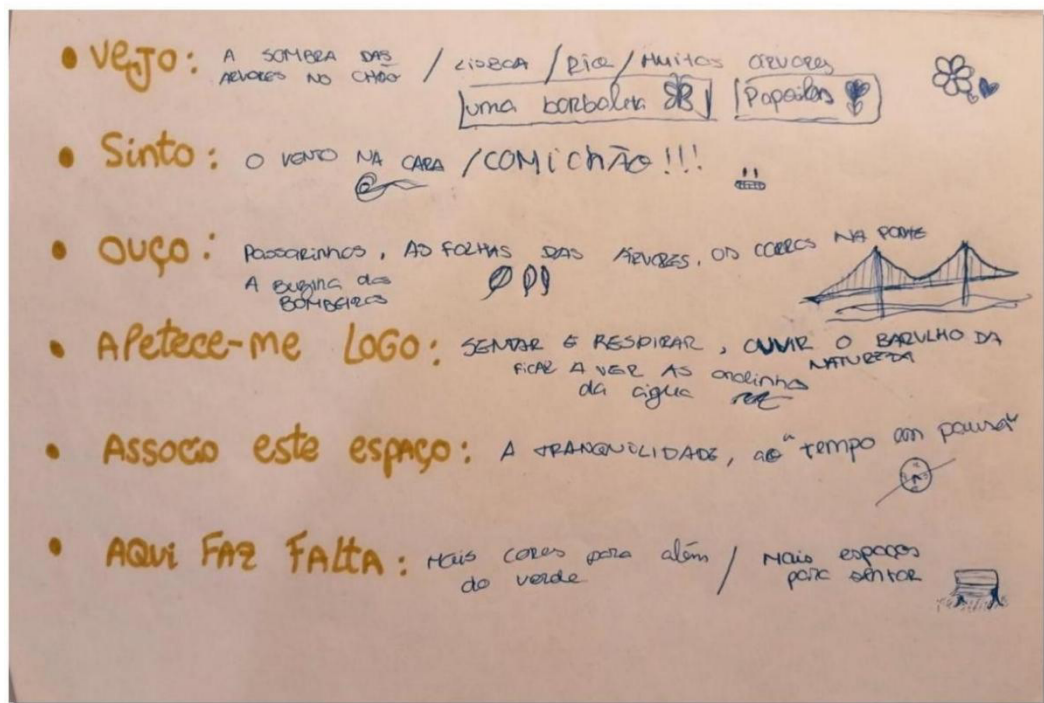 • Vejo: A SOMBRA DAS ÁRVORES NO CHÃO / LISBOA / Rio / Muitas árvores
uma borboleta Papoilas
• Sinto: O VENTO NA CARA / COMiCHÃO!!!
• Ouço: Passarinhos, AS FOLHAS DAS ÁRVORES, OS CARROS NA PONTE
A Buzina dos BOMBEIROS
• APetece-me LOGO: SENTAR E RESPIRAR, OUVIR O BARULHO DA NATUREZA
FICAR A VER AS ondinhas da água
• Associo este espaço: A TRANQUILIDADE, ao "tempo em pausa"
• AQUi FAZ FALTA: Mais cores para além do verde / Mais espaços para sentar